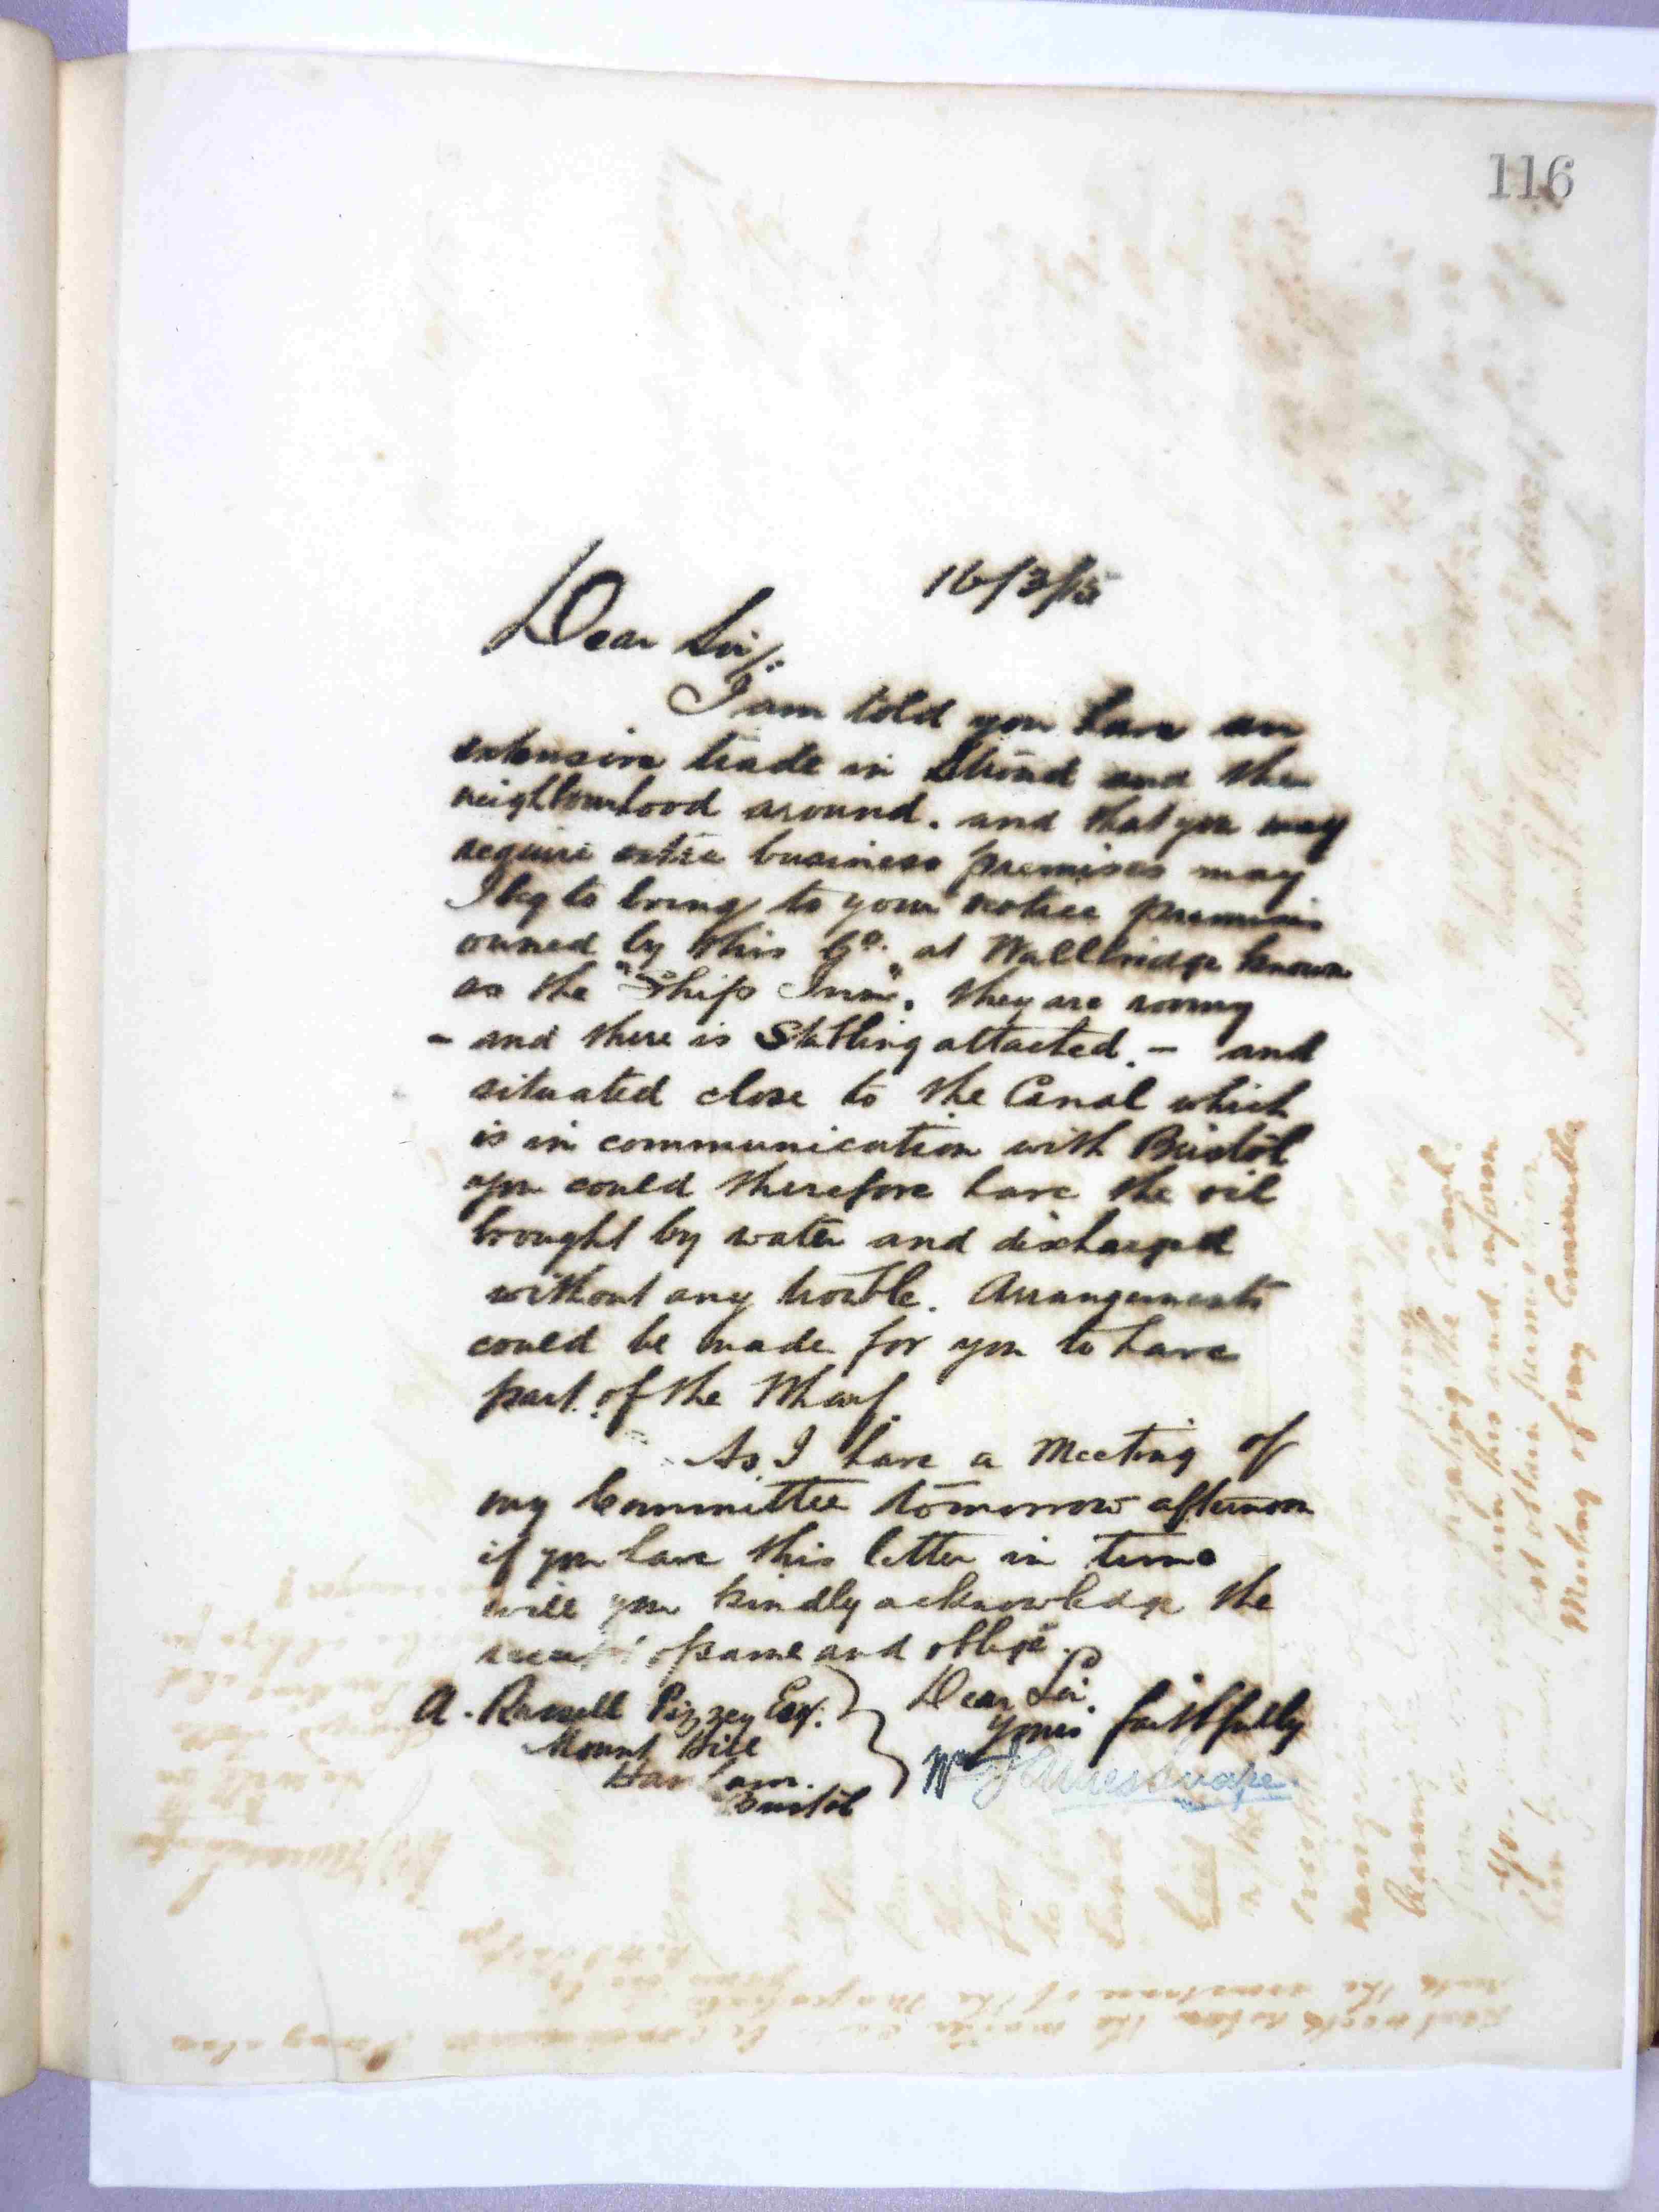 116
16/3/15
Dear Sir/.
I am told you have an
extensive trade in Stroud and the
neighbourhood around. and that you may
require extra business premises may
I beg to bring to your notice premises
owned by this Co. at Wallbridge known
as the "Ship Inn". they are roomy
- and there is Stabling attached. - and
situated close to the Canal which
is in communication with Bristol
you could therefore have the oil
brought by water and discharged
without any trouble. Arrangements
could be made for you to have
part of the Wharf.
As I have a Meeting of
my Committee tomorrow afternoon
if you have this letter in time
will you kindly acknowledge the
receipt of same and oblige.
Dear Sir
Yours faithfully
Wm J Snape.
A. Russell Pizzey Esq.
Mount Hill
Hanham.
Bristol